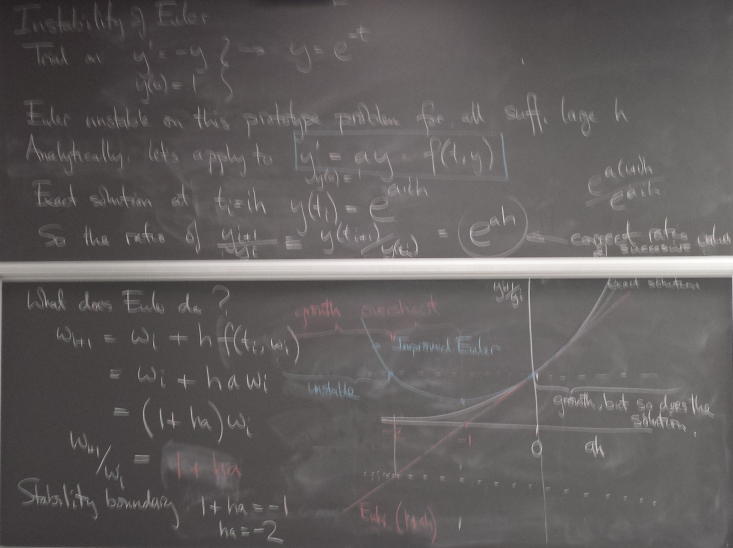 Instability of Euler
Trial on y' = -y } ⇒ y = e^-t
y(0) = 1
Euler unstable on this prototype problem for all suff. large h
Analytically, lets apply to y' = ay = f(t,y)
y(0) = 1
Exact solution at t_i = ih y(t_i) = e^aih
e^a(i+1)h / e^aih
So the ratio of y_i+1/y_i ≡ y(t_i+1)/y(t_i) = e^ah ← correct ratio
successive values
What does Euler do?
w_i+1 = w_i + h f(t_i, w_i)
= w_i + h a w_i
= (1 + ha) w_i
w_i+1/w_i = 1 + ha
Stability boundary 1 + ha = -1
ha = -2
growth overshoot
Improved Euler
unstable
y_i+1/y_i
exact solution
growth, but so does the
solution
-2
-1
0
ah
Euler (1+ah)